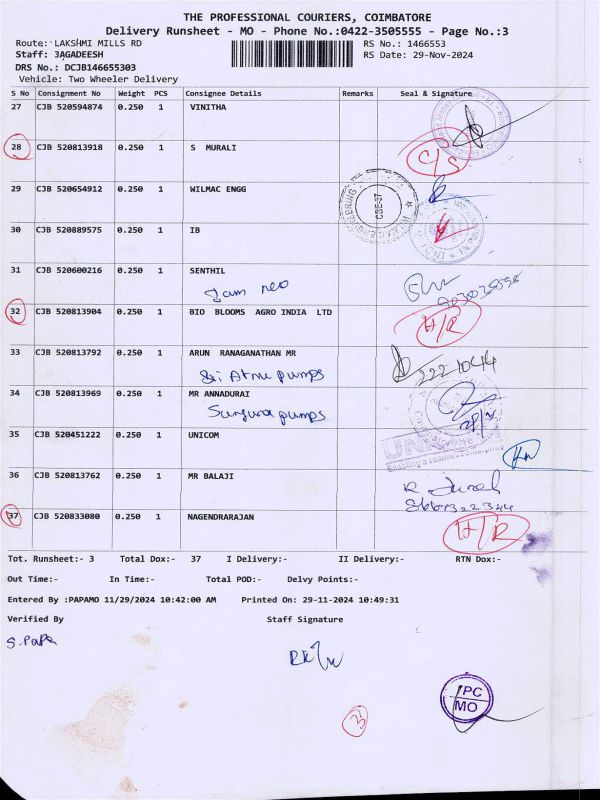 THE PROFESSIONAL COURIERS, COIMBATORE
Delivery Runsheet - MO - Phone No.:0422-3505555 - Page No.:3
Route: LAKSHMI MILLS RD RS No.: 1466553
Staff: JAGADEESH RS Date: 29-Nov-2024
DRS No.: DCJB146655303
Vehicle: Two Wheeler Delivery
S No Consignment No Weight PCS Consignee Details Remarks Seal & Signature
27 CJB 520594874 0.250 1 VINITHA
28 CJB 520813918 0.250 1 S MURALI C/S
29 CJB 520654912 0.250 1 WILMAC ENGG
CBE-37
30 CJB 520889575 0.250 1 IB
31 CJB 520600216 0.250 1 SENTHIL
32 CJB 520813904 0.250 1 BIO BLOOMS AGRO INDIA LTD H/R
33 CJB 520813792 0.250 1 ARUN RANAGANATHAN MR
Sri Atnu pumps 2221044
34 CJB 520813969 0.250 1 MR ANNADURAI
Suguna pumps
35 CJB 520451222 0.250 1 UNICOM
36 CJB 520813762 0.250 1 MR BALAJI
37 CJB 520833080 0.250 1 NAGENDRARAJAN H/R
Tot. Runsheet:- 3 Total Dox:- 37 I Delivery:- II Delivery:- RTN Dox:-
Out Time:- In Time:- Total POD:- Delvy Points:-
Entered By :PAPAMO 11/29/2024 10:42:00 AM Printed On: 29-11-2024 10:49:31
Verified By Staff Signature
S. Papa
TPC
MO
3